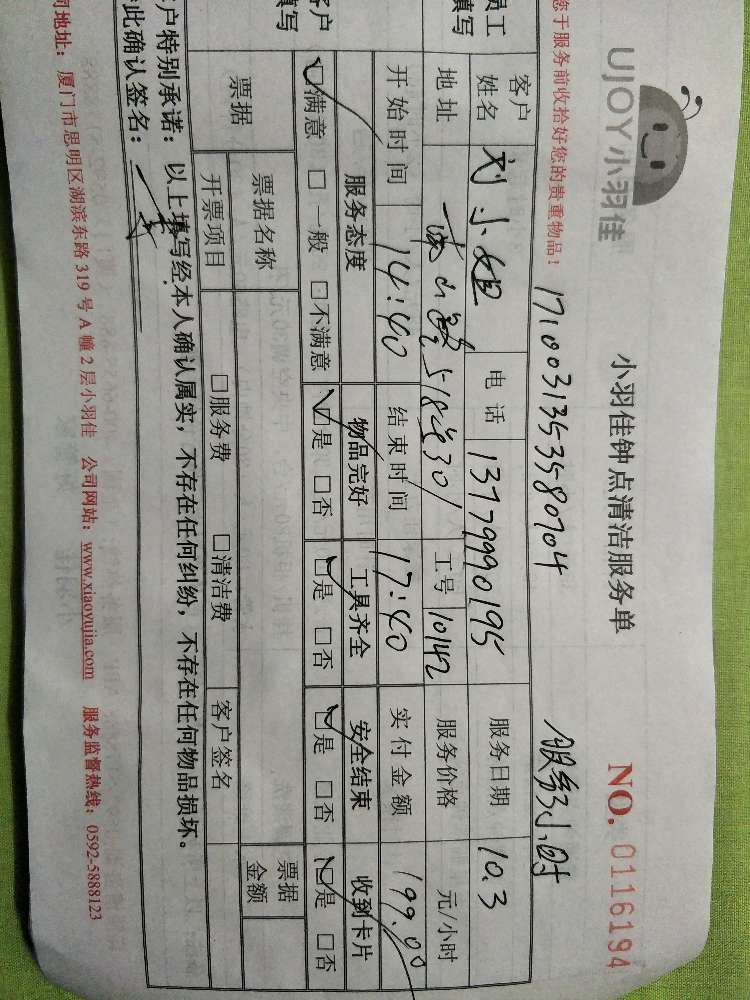 UJOY小羽佳
小羽佳钟点清洁服务单
NO. 0116194
1710031353580704
服务3小时
您于服务前收拾好您的贵重物品!
员工
填写
客户
姓名
刘小姐
电话
13779990195
服务日期
10.3
地址
518号301
工号
10142
服务价格
元/小时
开始时间
14:40
结束时间
17:40
实付金额
199.00
客户
填写
服务态度
物品完好
工具齐全
安全结束
收到卡片
☑满意 □一般 □不满意
☑是 □否
☑是 □否
☑是 □否
☑是 □否
票据
票据名称
票据
金额
开票项目
□服务费 □清洁费
客户签名
客户特别承诺:以上填写经本人确认属实,不存在任何纠纷,不存在任何物品损坏。
此确认签名:
司地址: 厦门市思明区湖滨东路 319 号 A 幢 2 层小羽佳 公司网站: www.xiaoyujia.com 服务监督热线: 0592-5888123